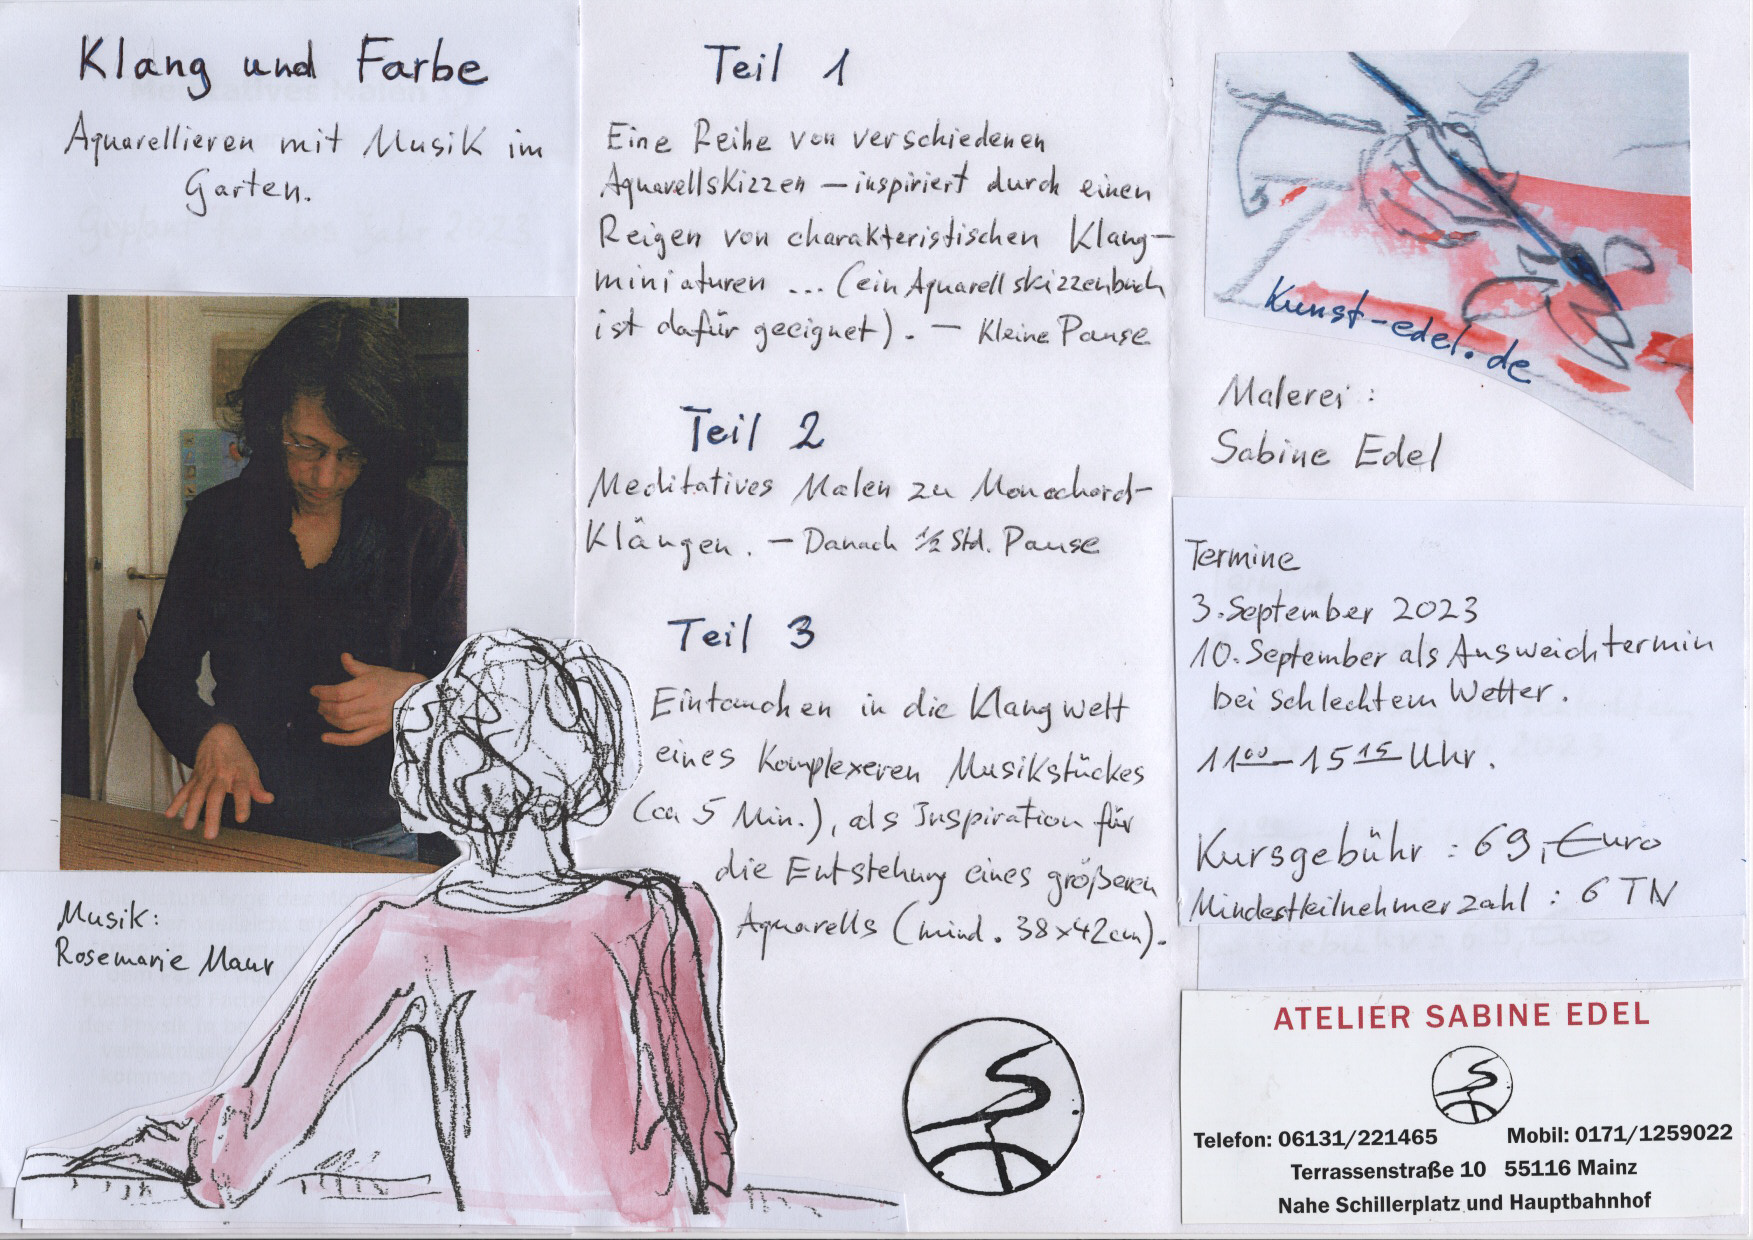 Klang und Farbe
Aquarellieren mit Musik im
Garten.
Musik:
Rosemarie Maur
Teil 1
Eine Reihe von verschiedenen
Aquarellskizzen – inspiriert durch einen
Reigen von charakteristischen Klang-
miniaturen ... (ein Aquarellskizzenbuch
ist dafür geeignet). – Kleine Pause
Teil 2
Meditatives Malen zu Monochord-
Klängen. – Danach ½ Std. Pause
Teil 3
Eintauchen in die Klangwelt
eines Komplexeren Musikstückes
(ca 5 Min.), als Inspiration für
die Entstehung eines größeren
Aquarells (mind. 38x42cm).
Kunst-edel.de
Malerei:
Sabine Edel
Termine
3. September 2023
10. September als Ausweichtermin
bei schlechtem Wetter.
11⁰⁰–15¹⁵ Uhr.
Kursgebühr: 69,- Euro
Mindestteilnehmerzahl: 6 TN
ATELIER SABINE EDEL
Telefon: 06131/221465 Mobil: 0171/1259022
Terrassenstraße 10 55116 Mainz
Nahe Schillerplatz und Hauptbahnhof